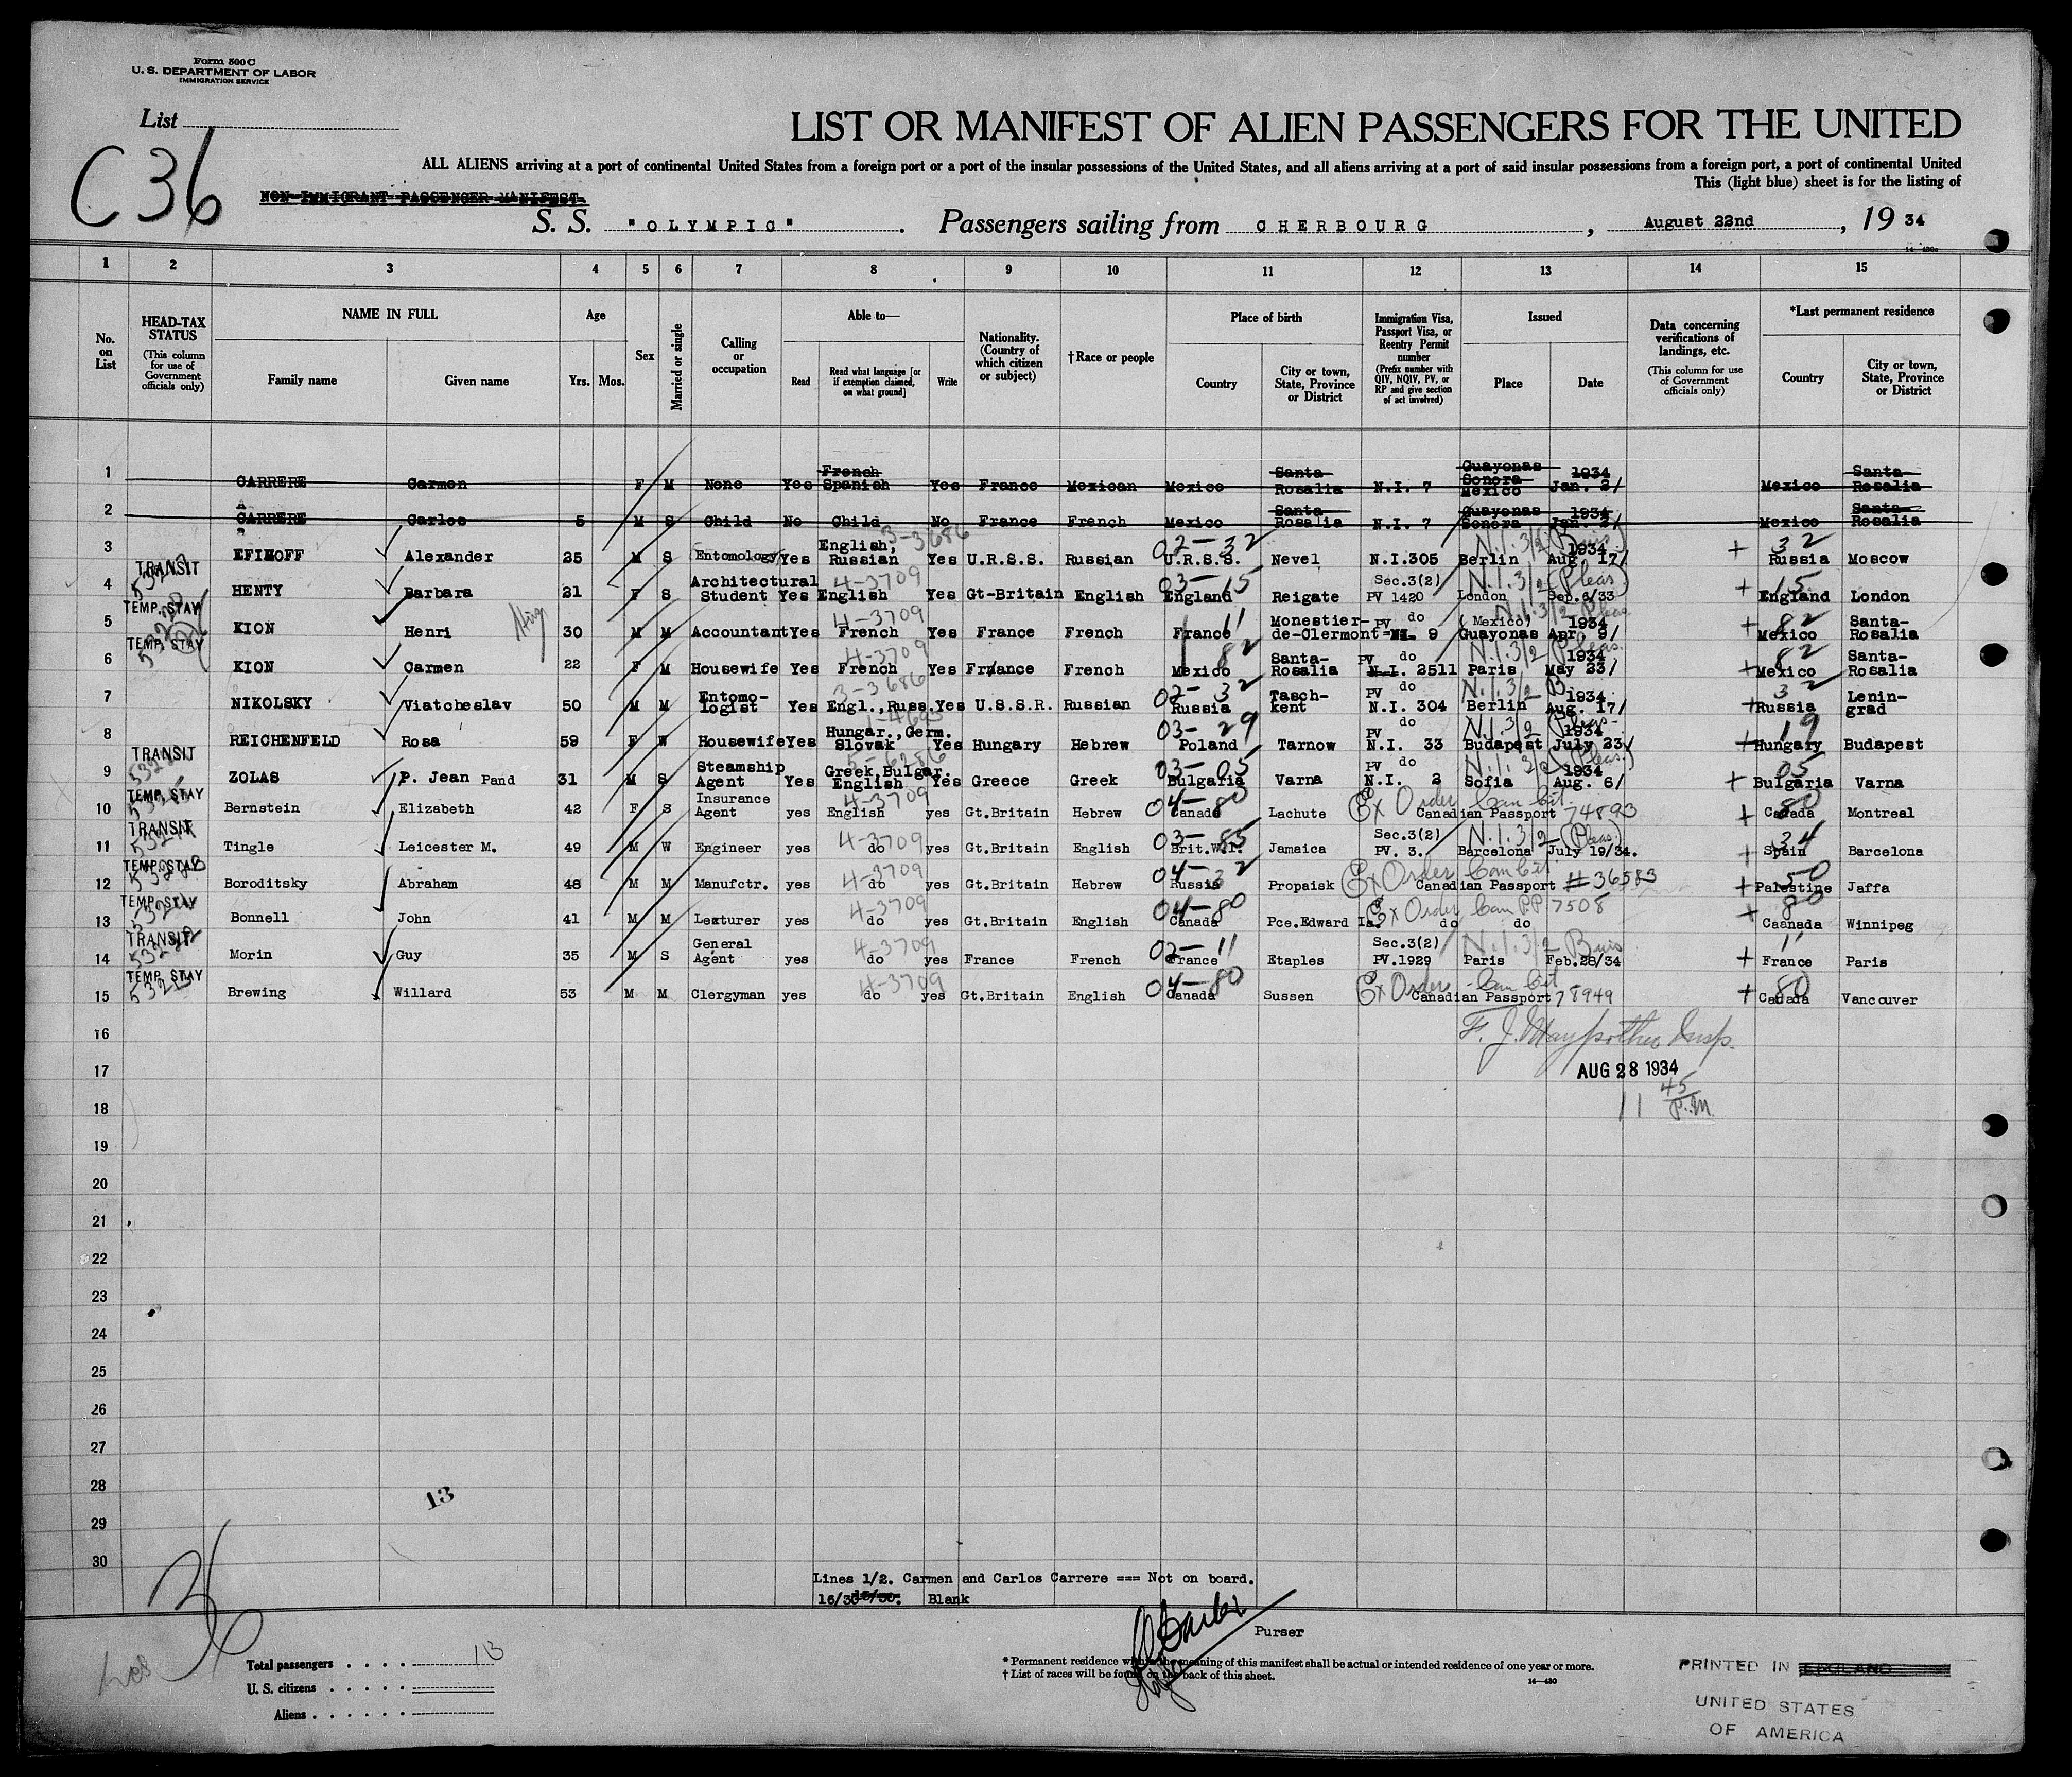 Form 500 C
U. S. DEPARTMENT OF LABOR
IMMIGRATION SERVICE
List
C 36
LIST OR MANIFEST OF ALIEN PASSENGERS FOR THE UNITED
ALL ALIENS arriving at a port of continental United States from a foreign port or a port of the insular possessions of the United States, and all aliens arriving at a port of said insular possessions from a foreign port, a port of continental United
This (light blue) sheet is for the listing of
NON-IMMIGRANT PASSENGER MANIFEST.
S. S. "OLYMPIC". Passengers sailing from CHERBOURG, August 22nd, 19 34
1 2 3 4 5 6 7 8 9 10 11 12 13 14 15
No. on List
HEAD-TAX STATUS (This column for use of Government officials only)
NAME IN FULL Family name Given name
Age Yrs. Mos.
Sex
Married or single
Calling or occupation
Able to— Read Read what language [or if exemption claimed, on what ground] Write
Nationality. (Country of which citizen or subject)
†Race or people
Place of birth Country City or town, State, Province or District
Immigration Visa, Passport Visa, or Reentry Permit number (Prefix number with QIV, NQIV, PV, or RP and give section of act involved)
Issued Place Date
Data concerning verifications of landings, etc. (This column for use of Government officials only)
*Last permanent residence Country City or town, State, Province or District
1 CARRERE Carmen F M None Yes French Spanish Yes France Mexican Mexico Santa Rosalia N.I. 7 Guayonas Sonora Mexico 1934 Jan. 2/ Mexico Santa Rosalia
2 CARRERE Carlos 5 M S Child No Child No France French Mexico Santa Rosalia N.I. 7 Guayonas Sonora 1934 Jan. 2/ Mexico Santa Rosalia
3 EFIMOFF Alexander 25 M S Entomology Yes English, Russian 3-3686 Yes U.R.S.S. Russian 02-32 U.R.S.S. Nevel N.I.305 Berlin N.I.3/2 Bus 1934 Aug. 17/ + 32 Russia Moscow
4 TRANSIT HENTY Barbara 21 F S Architectural Student Yes English 4-3709 Yes Gt-Britain English 03-15 England Reigate Sec.3(2) PV 1420 London N.I.3/2 (Pleas) Sep.6/33 + 15 England London
5 TEMP. STAY KION Henri 30 M M Accountant Yes French 4-3709 Yes France French 11 France Monestier-de-Clermont PV do N.I. 9 (Mexico) Guayonas N.I.3/2 Pleas. 1934 Apr. 9/ + 82 Mexico Santa-Rosalia
6 TEMP. STAY KION Carmen 22 F M Housewife Yes French 4-3709 Yes France French 82 Mexico Santa-Rosalia PV do N.I. 2511 Paris N.I.3/2 Pleas. 1934 May 23/ + 82 Mexico Santa-Rosalia
7 NIKOLSKY Viatcheslav 50 M M Entomo-logist Yes Engl.,Russ. 3-3686 Yes U.S.S.R. Russian 02-32 Russia Tasch-kent PV do N.I. 304 Berlin N.I.3/2 B 1934 Aug. 17/ + 32 Russia Lenin-grad
8 REICHENFELD Rosa 59 F W Housewife Yes Hungar.,Germ. Slovak Yes Hungary Hebrew 03-29 Poland Tarnow PV do N.I. 33 Budapest N.I.3/2 (Pleas- 1934 July 23/ + 19 Hungary Budapest
9 TRANSIT ZOLAS P. Jean Pand 31 M S Steamship Agent Yes Greek,Bulgar. English 5-6286 Yes Greece Greek 03-05 Bulgaria Varna PV do N.I. 2 Sofia N.I.3/2 (Pleas.) 1934 Aug. 6/ + 05 Bulgaria Varna
10 TEMP. STAY Bernstein Elizabeth 42 F S Insurance Agent yes English 4-3709 yes Gt.Britain Hebrew 04-80 Canada Lachute Ex Order Can Cit. Canadian Passport 74893 + 80 Canada Montreal
11 TRANSIT Tingle Leicester M. 49 M W Engineer yes do 4-3709 yes Gt.Britain English 03-85 Brit.W.I. Jamaica Sec.3(2) PV. 3. Barcelona N.I.3/2 (Pleas) July 19/34. + 34 Spain Barcelona
12 TEMP. STAY Boroditsky Abraham 48 M M Manufctr. yes do 4-3709 yes Gt.Britain Hebrew 04-32 Russia Propaisk Ex Order Can Cit Canadian Passport # 36583 + 50 Palestine Jaffa
13 TEMP. STAY Bonnell John 41 M M Lexturer yes do 4-3709 yes Gt.Britain English 04-80 Canada Pce.Edward Is. Ex Order Can PP 7508 do do + 80 Caanada Winnipeg
14 TRANSIT Morin Guy 35 M S General Agent yes do 4-3709 yes France French 02-11 France Etaples Sec.3(2) PV.1929 Paris N.I.3/2 Bus Feb.28/34 + 11 France Paris
15 TEMP. STAY Brewing Willard 53 M M Clergyman yes do 4-3709 yes Gt.Britain English 04-80 Canada Sussen Ex Order Can Cit. Canadian Passport 78949 + 80 Canada Vancouver
16
17 AUG 28 1934
18 11 45 P.M.
19
20
21
22
23
24
25
26
27
28
29
30
13
Lines 1/2. Carmen and Carlos Carrere === Not on board.
16/30 15/30. Blank
36
Purser
Total passengers 13
U. S. citizens
Aliens
* Permanent residence within the meaning of this manifest shall be actual or intended residence of one year or more.
† List of races will be found on the back of this sheet.
14—430
PRINTED IN ENGLAND
UNITED STATES
OF AMERICA